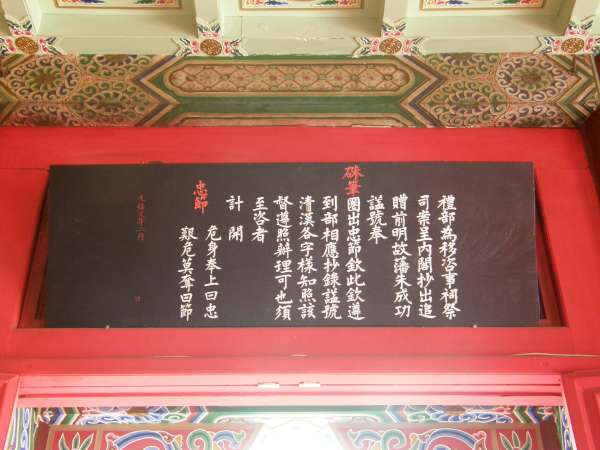 禮部為移咨事祠祭
司案呈內閣抄出追
贈前明故藩朱成功
諡號奉
硃筆圈出忠節欽此欽遵
到部相應抄錄諡號
清漢各字樣知照該
督遵照辦理可也須
至咨者
計開
忠節
危身奉上曰忠
艱危莫奪曰節
光緒元年二月